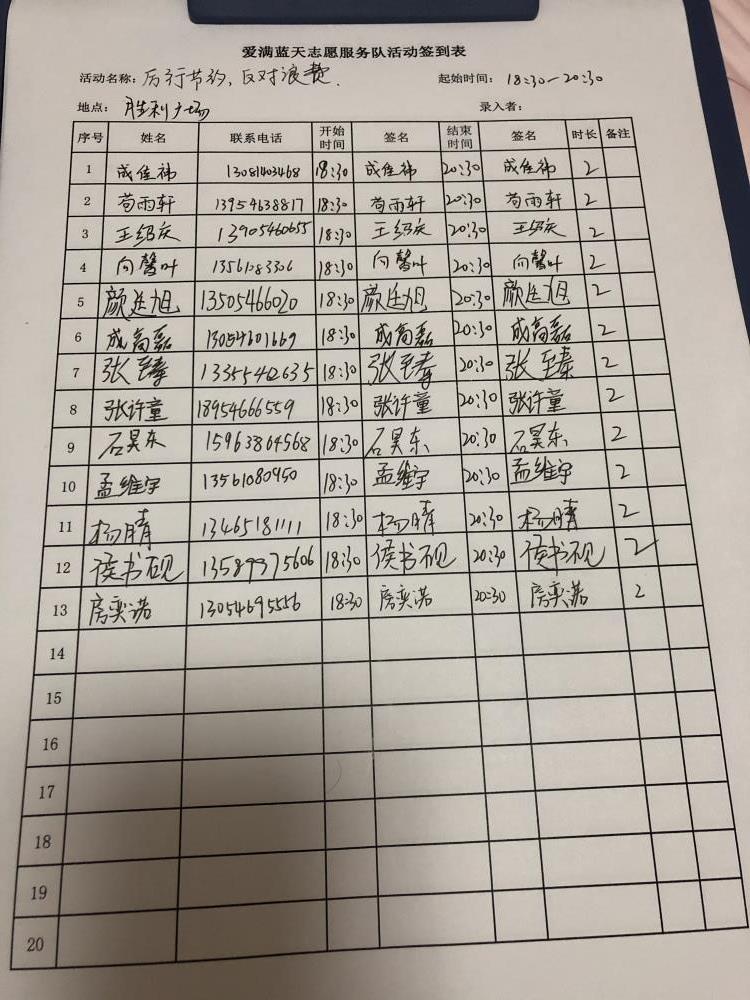 爱满蓝天志愿服务队活动签到表
活动名称: 厉行节约、反对浪费. 起始时间: 18:30-20:30
地点: 胜利广场 录入者:
序号 姓名 联系电话 开始时间 签名 结束时间 签名 时长 备注
1 成佳祎 13081403468 18:30 成佳祎 20:30 成佳祎 2
2 荀雨轩 13954638817 18:30 荀雨轩 20:30 荀雨轩 2
3 王绍庆 13905460655 18:30 王绍庆 20:30 王绍庆 2
4 向馨叶 13561283306 18:30 向馨叶 20:30 向馨叶 2
5 颜廷旭 13505466020 18:30 颜廷旭 20:30 颜廷旭 2
6 成高磊 13054601669 18:30 成高磊 20:30 成高磊 2
7 张至臻 13355462635 18:30 张至臻 20:30 张至臻 2
8 张许童 18954666559 18:30 张许童 20:30 张许童 2
9 石昊东 15963864568 18:30 石昊东 20:30 石昊东 2
10 孟维宇 13561080950 18:30 孟维宇 20:30 孟维宇 2
11 杨晴 13465181111 18:30 杨晴 20:30 杨晴 2
12 侯书砚 13589975606 18:30 侯书砚 20:30 侯书砚 2
13 房奕诺 13054695556 18:30 房奕诺 20:30 房奕诺 2
14
15
16
17
18
19
20